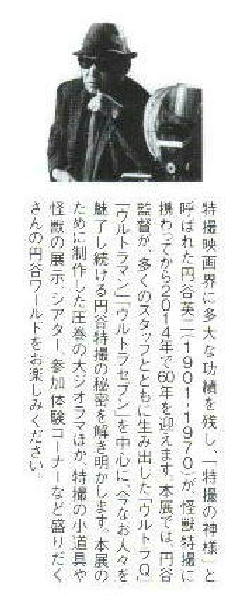 特撮映画界に多大な功績を残し、「特撮の神様」と
呼ばれた円谷英二（1901-1970）が怪獣特撮に
携わってから2014年で60年を迎えます。本展では、円谷
監督が、多くのスタッフとともに生み出した「ウルトラQ」
「ウルトラマン」「ウルトラセブン」を中心に、今なお人々を
魅了し続ける円谷特撮の秘密を解き明かします。本展の
ために制作した圧巻の大ジオラマほか特撮の小道具や
怪獣の展示、シアター、参加体験コーナーなど盛りだく
さんの円谷ワールドをお楽しみください。